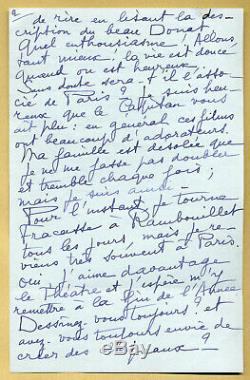 de rire en lisant la des-
cription du beau Donat
Quel enthousiasme. Allons
tant mieux, la vie est douce
quand on est heureux.
Sans doute sera-t-il l'asso-
cié de Paris ? Je suis heu-
reux que le Capitan vous
ait plu : en général ces films
ont beaucoup d'adorateurs.
Ma famille est désolée que
je ne me fasse pas doubler
et tremble chaque fois ;
mais je suis ainsi -
Pour l'instant je tourne
Fracasse à Rambouillet
tous les jours, mais je re-
viens très souvent à Paris.
Oui, j'aime davantage
le théâtre et j'espère m'y
remettre à la fin de l'Année
Dessinez-vous toujours ? et
avez-vous toujours envie de
créer des bijoux ?